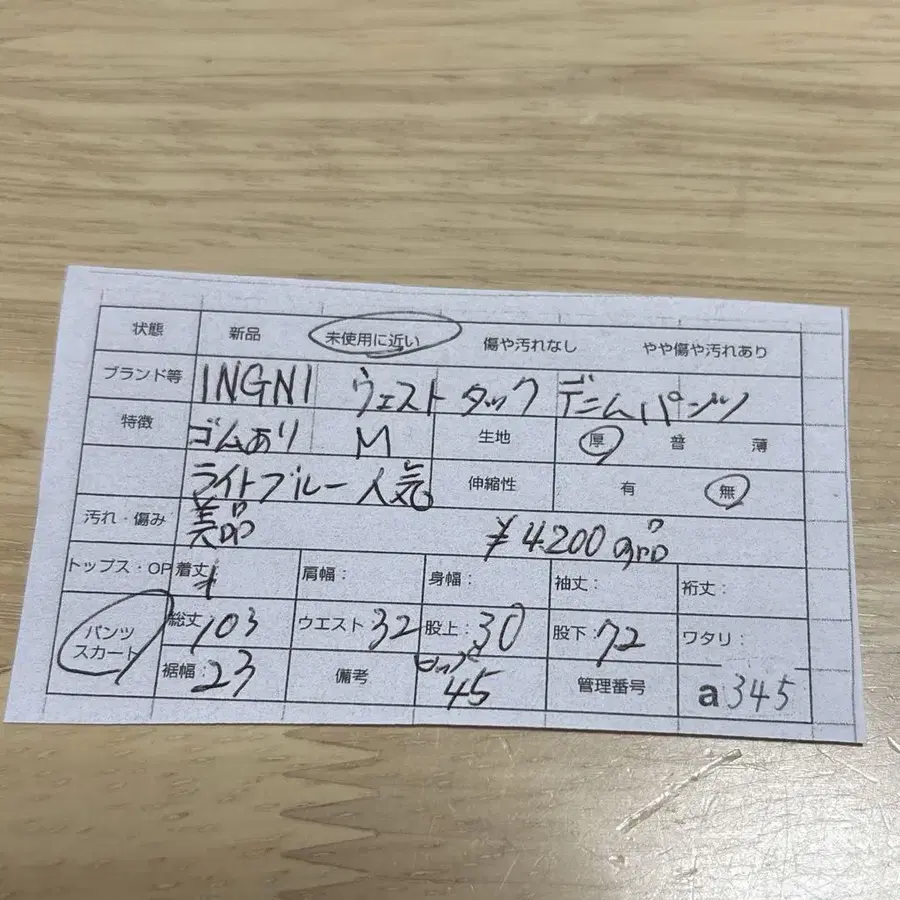 状態 新品 未使用に近い 傷や汚れなし やや傷や汚れあり
ブランド等 INGNI ウェスト タック デニムパンツ
特徴 ゴムあり M 生地 厚 普 薄
ライトブルー 人気 伸縮性 有 無
汚れ・傷み 美品 ¥4200
トップス・OP 着丈 肩幅： 身幅： 袖丈： 裄丈：
パンツ スカート 総丈 103 ウエスト 32 股上：30 股下：72 ワタリ：
裾幅：23 備考 ヒップ 45 管理番号 a345